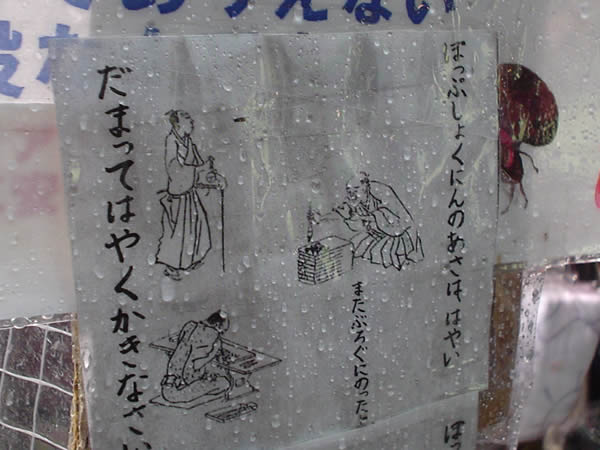 ありえない
ぽっぷしょくにんのあさは、はやい
またぶろぐにのった
だまってはやくかきなさい